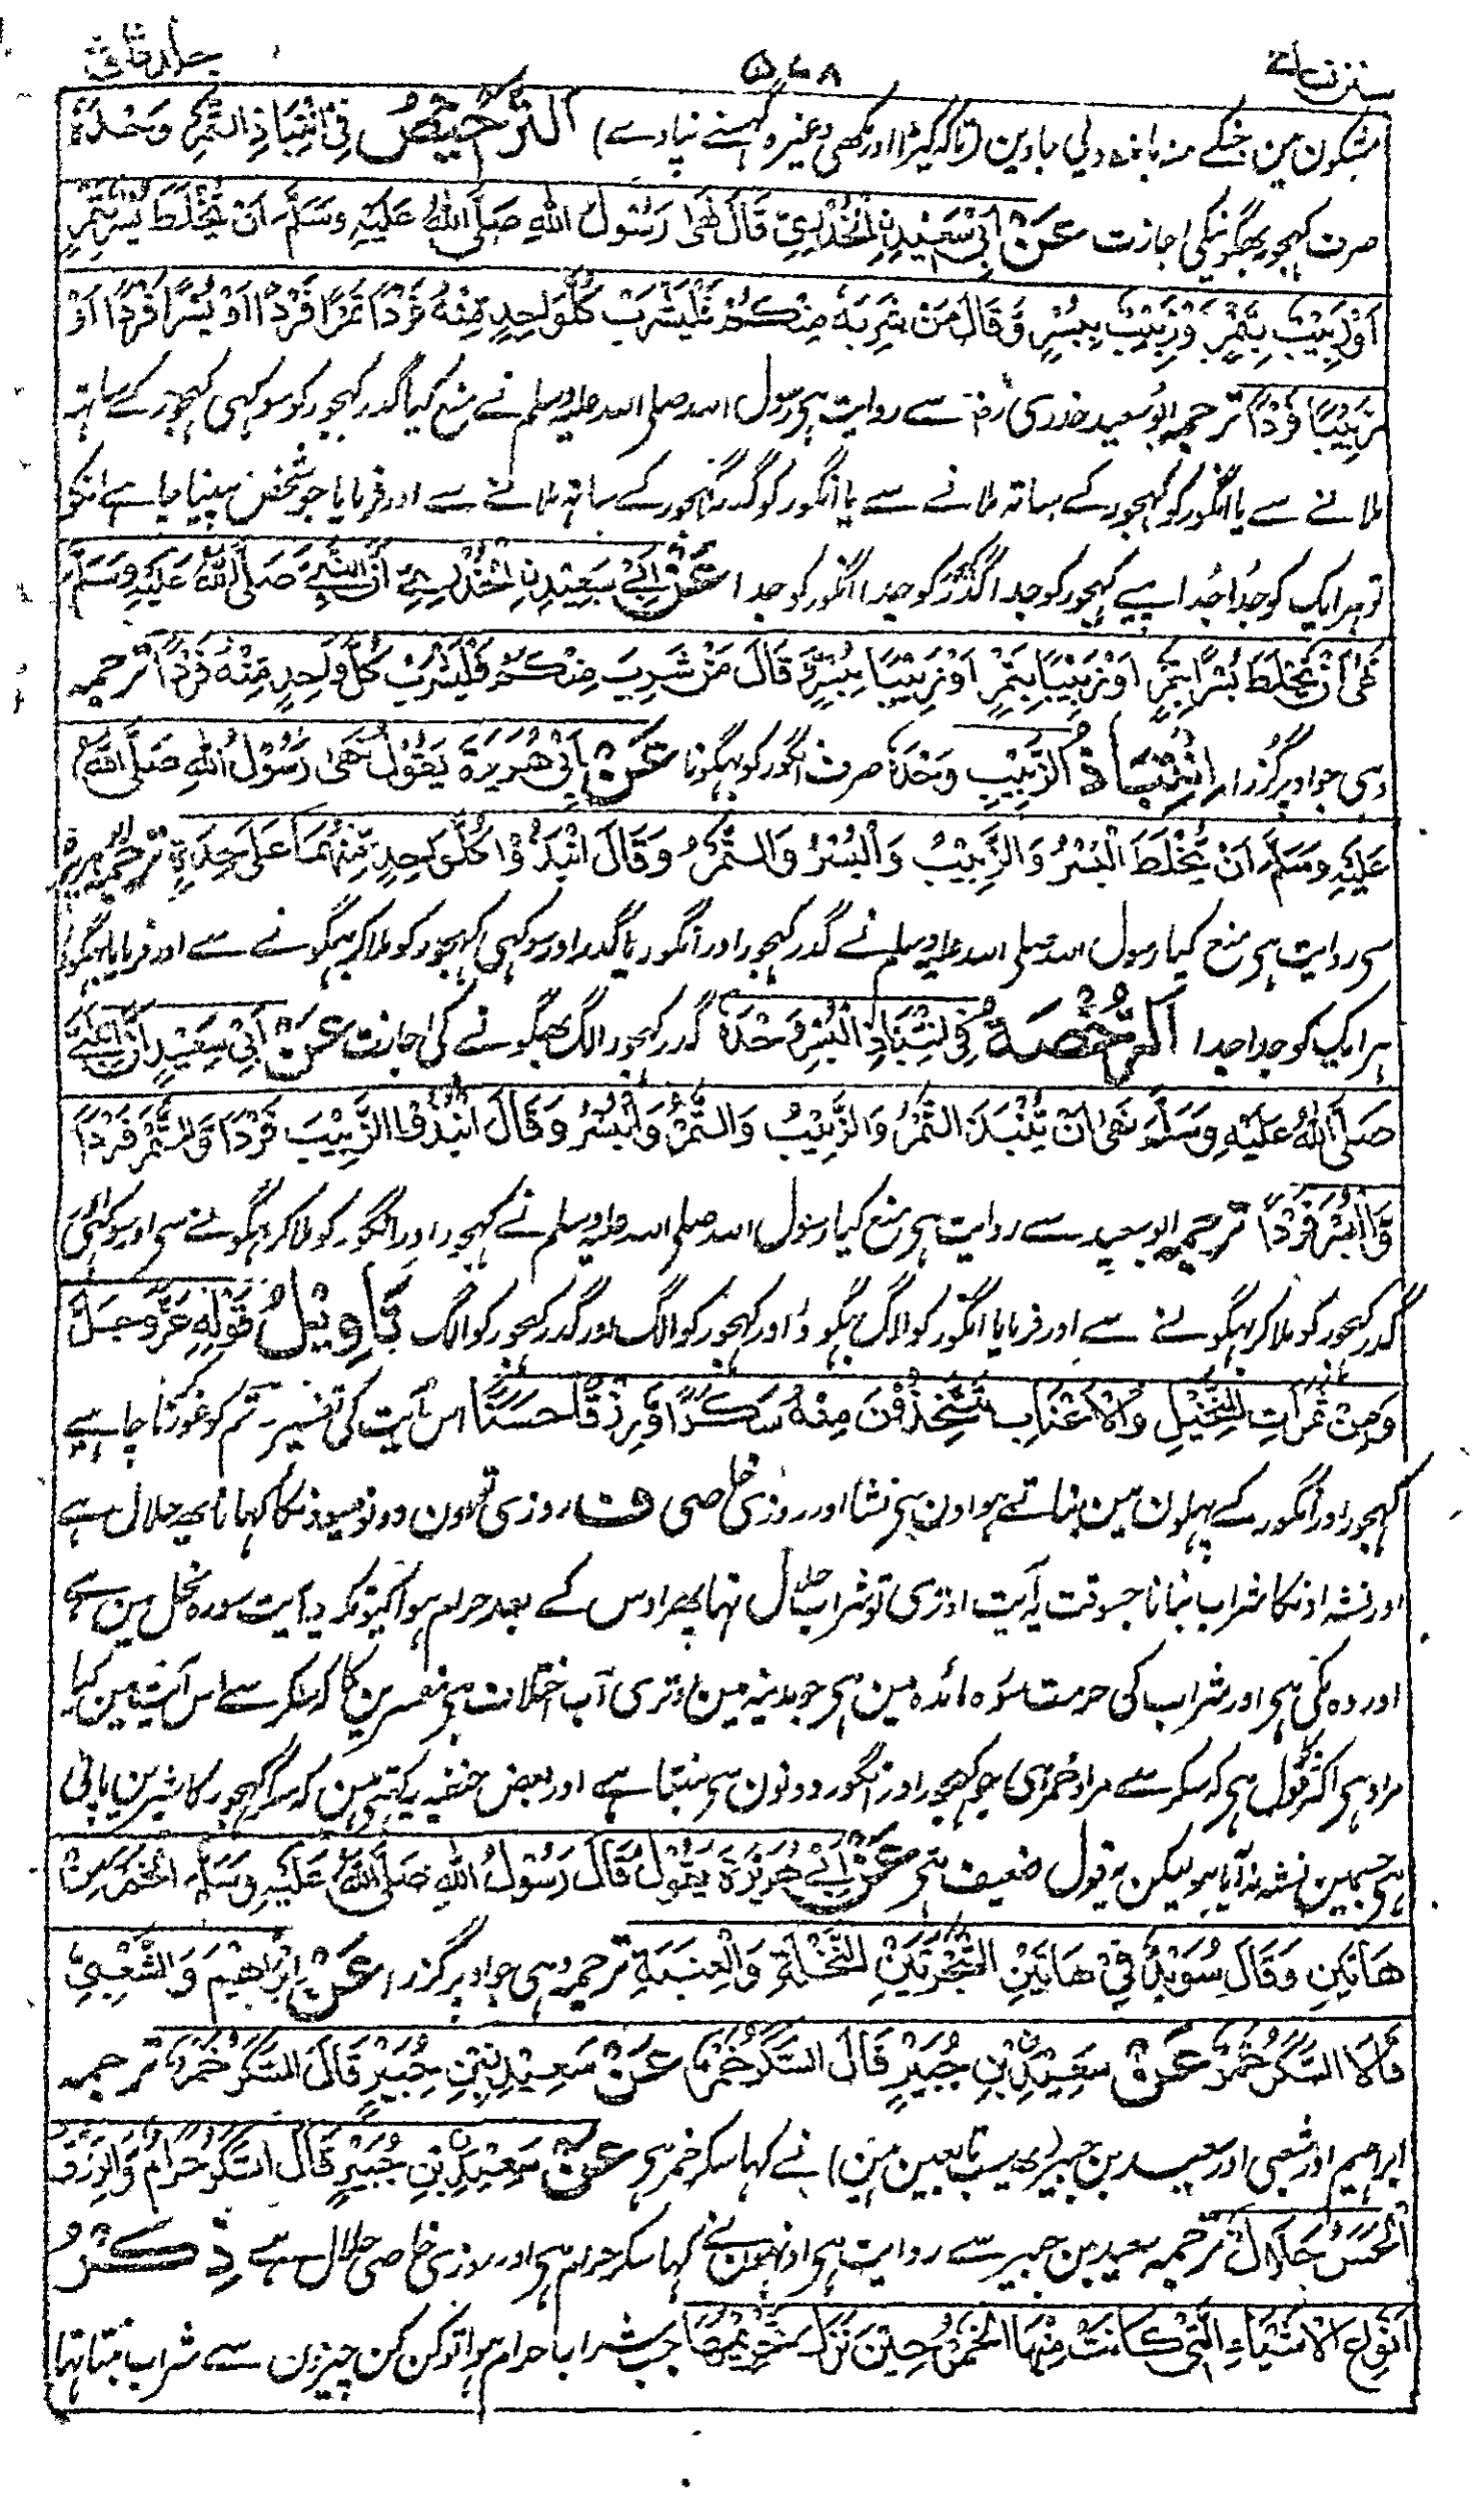 سنن نسائی ۵۷۸ جلد ثانی
مشکون مین جنکے منہ باندہ دیے جاوین (تاکہ کیڑا اور مکھی وغیرہ گہسنے نپاوے) اَلتَّرْخِيْصُ فِي انْتِبَاذِ التَّمْرِ وَحْدَهٗ
صرف کہجور بھگونیکی اجازت عَنْ اَبِيْ سَعِيْدِنِ الْخُدْرِيِّ قَالَ نَهٰى رَسُوْلُ اللهِ صَلَّى اللهُ عَلَيْهِ وَسَلَّمَ اَنْ يُّخْلَطَ بُسْرٌ بِتَمْرٍ
اَوْ زَبِيْبٌ بِتَمْرٍ وَّزَبِيْبٌ بِبُسْرٍ وَّقَالَ مَنْ شَرِبَهٗ مِنْكُمْ فَلْيَشْرَبْ كُلَّ وَاحِدٍ مِّنْهُ فَرْدًا تَمْرًا فَرْدًا اَوْ بُسْرًا فَرْدًا اَوْ
زَبِيْبًا فَرْدًا ترجمہ ابو سعید خدری رض سے روایت ہی رسول اللہ صلی اللہ علیہ وسلم نے منع کیا گدر کہجور کو سوکہی کہجور کے ساتہہ
ملانے سے یا انگور کو کہجور کے ساتہ ملانے سے یا انگور کو گدر کہجور کے ساتہ ملانے سے اور فرمایا جو شخص پینا چاہے انکو
تو ہر ایک کو جدا جدا پیے کہجور کو جدا گدر کو جدا انگور کو جدا عَنْ اَبِيْ سَعِيْدِنِ الْخُدْرِيِّ اَنَّ النَّبِيَّ صَلَّى اللهُ عَلَيْهِ وَسَلَّمَ
نَهٰى اَنْ يُّخْلَطَ بُسْرًا بِتَمْرٍ اَوْ زَبِيْبًا بِتَمْرٍ اَوْ زَبِيْبًا بِبُسْرٍ وَّقَالَ مَنْ شَرِبَ مِنْكُمْ فَلْيَشْرَبْ كُلَّ وَاحِدٍ مِنْهُ فَرْدًا ترجمہ
وہی جو اوپر گزرا اِنْتِبَاذُ الزَّبِيْبِ وَحْدَهٗ صرف انگور کو بہگونا عَنْ اَبِيْ هُرَيْرَةَ يَقُوْلُ نَهٰى رَسُوْلُ اللهِ صَلَّى اللهُ
عَلَيْهِ وَسَلَّمَ اَنْ يُّخْلَطَ الْبُسْرُ وَالزَّبِيْبُ وَالْبُسْرُ وَالتَّمْرُ وَقَالَ انْبِذُوْا كُلَّ وَاحِدٍ مِّنْهُمَا عَلٰى حِدَةٍ ترجمہ ابو ہریرہ
سی روایت ہی منع کیا رسول اللہ صلی اللہ علیہ وسلم نے گدر کہجور اور انگور یا گدر اور سوکہی کہجور کو ملا کر بہگونے سے اور فرمایا بہگوؤ
ہر ایک کو جدا جدا اَلرُّخْصَةُ فِي انْتِبَاذِ الْبُسْرِ وَحْدَهٗ گدر کہجور الگ بھگونے کی اجازت عَنْ اَبِيْ سَعِيْدٍ اَنَّ النَّبِيَّ
صَلَّى اللهُ عَلَيْهِ وَسَلَّمَ نَهٰى اَنْ يُّنْبَذَ التَّمْرُ وَالزَّبِيْبُ وَالتَّمْرُ وَالْبُسْرُ وَقَالَ انْبِذُوا الزَّبِيْبَ فَرْدًا وَّالتَّمْرَ فَرْدًا
وَّالْبُسْرَ فَرْدًا ترجمہ ابو سعید سے روایت ہی منع کیا رسول اللہ صلی اللہ علیہ وسلم نے کہجور اور انگور کو ملا کر بہگونے سی اور سوکہی اور
گدر کہجور کو ملا کر بہگونے سے اور فرمایا انگور کو الگ بہگوؤ اور کہجور کو الگ اور گدر کہجور کو الگ تَاوِيْلُ قَوْلِهٖ عَزَّوَجَلَّ
وَمِنْ ثَمَرَاتِ النَّخِيْلِ وَالْاَعْنَابِ تَتَّخِذُوْنَ مِنْهُ سَكَرًا وَّرِزْقًا حَسَنًا اس آیت کی تفسیر تم کو غور کرنا چاہیے
کہجور اور انگور کے پہلون مین بناتے ہو اون سی نشا اور روزی خاصی ف روزی تو اون دونو میوؤنکا کہانا یہ حلال ہے
اور نشہ اونکا شراب بنانا جسوقت یہ آیت اوتری تو شراب حلال تہا پھر اوس کے بعد حرام ہوا کیونکہ یہ آیت سورہ نحل مین ہے
اور وہ مکی ہی اور شراب کی حرمت سورہ مائدہ مین ہی جو مدینہ مین اوتری اب اختلاف ہی مفسرین کا کہ سکر سے اس آیت مین کیا
مراد ہی اکثر کا قول ہی کہ سکر سے مراد خمر ہی جو کھجور اور انگور دونون سی بنتا ہے اور بعض حنفیہ کہتے ہین کہ سکر کہجور کا شیرین پانی
ہی جسمین نشہ نہ آیا ہو لیکن یہ قول ضعیف ہی عَنْ اَبِيْ هُرَيْرَةَ يَقُوْلُ قَالَ رَسُوْلُ اللهِ صَلَّى اللهُ عَلَيْهِ وَسَلَّمَ الْخَمْرُ مِنْ
هَاتَيْنِ وَقَالَ سُوَيْدٌ فِيْ هَاتَيْنِ الشَّجَرَتَيْنِ النَّخْلَةِ وَالْعِنَبَةِ ترجمہ وہی جو اوپر گزرا عَنْ اِبْرَاهِيْمَ وَالشَّعْبِيِّ
قَالَا السَّكَرُ خَمْرٌ عَنْ سَعِيْدِ بْنِ جُبَيْرٍ قَالَ السَّكَرُ خَمْرٌ عَنْ سَعِيْدِ بْنِ جُبَيْرٍ قَالَ السَّكَرُ خَمْرٌ ترجمہ
ابراہیم اور شعبی اور سعید بن جبیر (یہ سب تابعین ہین) نے کہا سکر خمر ہی عَنْ سَعِيْدِ بْنِ جُبَيْرٍ قَالَ السَّكَرُ حَرَامٌ وَّالرِّزْقُ
الْحَسَنُ حَلَالٌ ترجمہ سعید بن جبیر سے روایت ہی اونہون نے کہا سکر حرام ہی اور روزی خاصی حلال ہے ذِكْرُ
اَنْوَاعِ الْاَشْيَاءِ الَّتِيْ كَانَتْ مِنْهَا الْخَمْرُ حِيْنَ نَزَلَ تَحْرِيْمُهَا جب شراب حرام ہوا تو کن کن چیزون سے شراب بنتا تہا